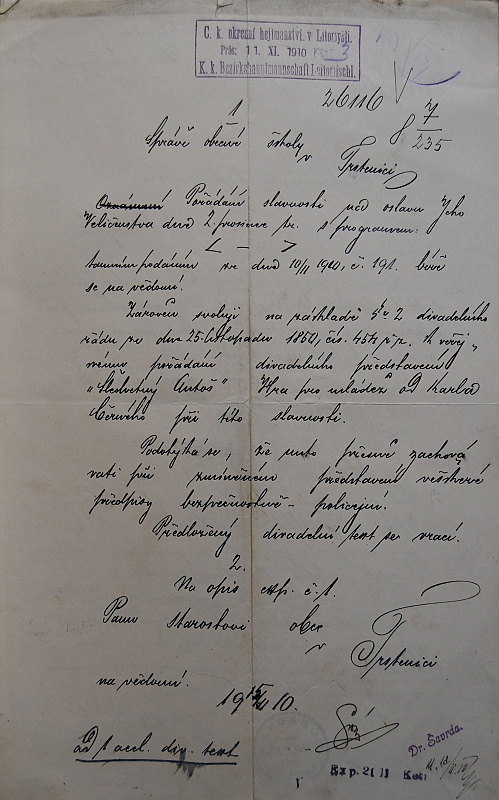 C. k. okresní hejtmanství v Litomyšli.
Präs: 11. XI. 1910
K. k. Bezirkshauptmannschaft Leitomischl.
26116
7
8
235
1
Správě obecné školy
v
Trstenici
Pořádání slavnosti na oslavu Jeho
Veličenstva dne 2. prosince tr. s programem:
< — >
tamním podáním ze dne 10/11 1910, č. 191. béře
se na vědomí.
Zároveň svoluji na základě § 2 divadelního
řádu ze dne 25. listopadu 1850, čís. 454 ř. z. k veřej„
nému pořádání divadelního představení
„Šlechetný Antoš" Hra pro mládež od Karla
Červého při této slavnosti.
Podotýká se, že nutno přesně zachová
vati při zmíněném představení veškeré
předpisy bezpečnostně - policejní.
Předložený divadelní text se vrací.
2.
Na opis exp. č. 1.
Panu Starostovi obce
v
Trstenici
na vědomí.
19 10.
Ad 1 accl. div. text
Dr. Šavrda.
Exp. 21 11